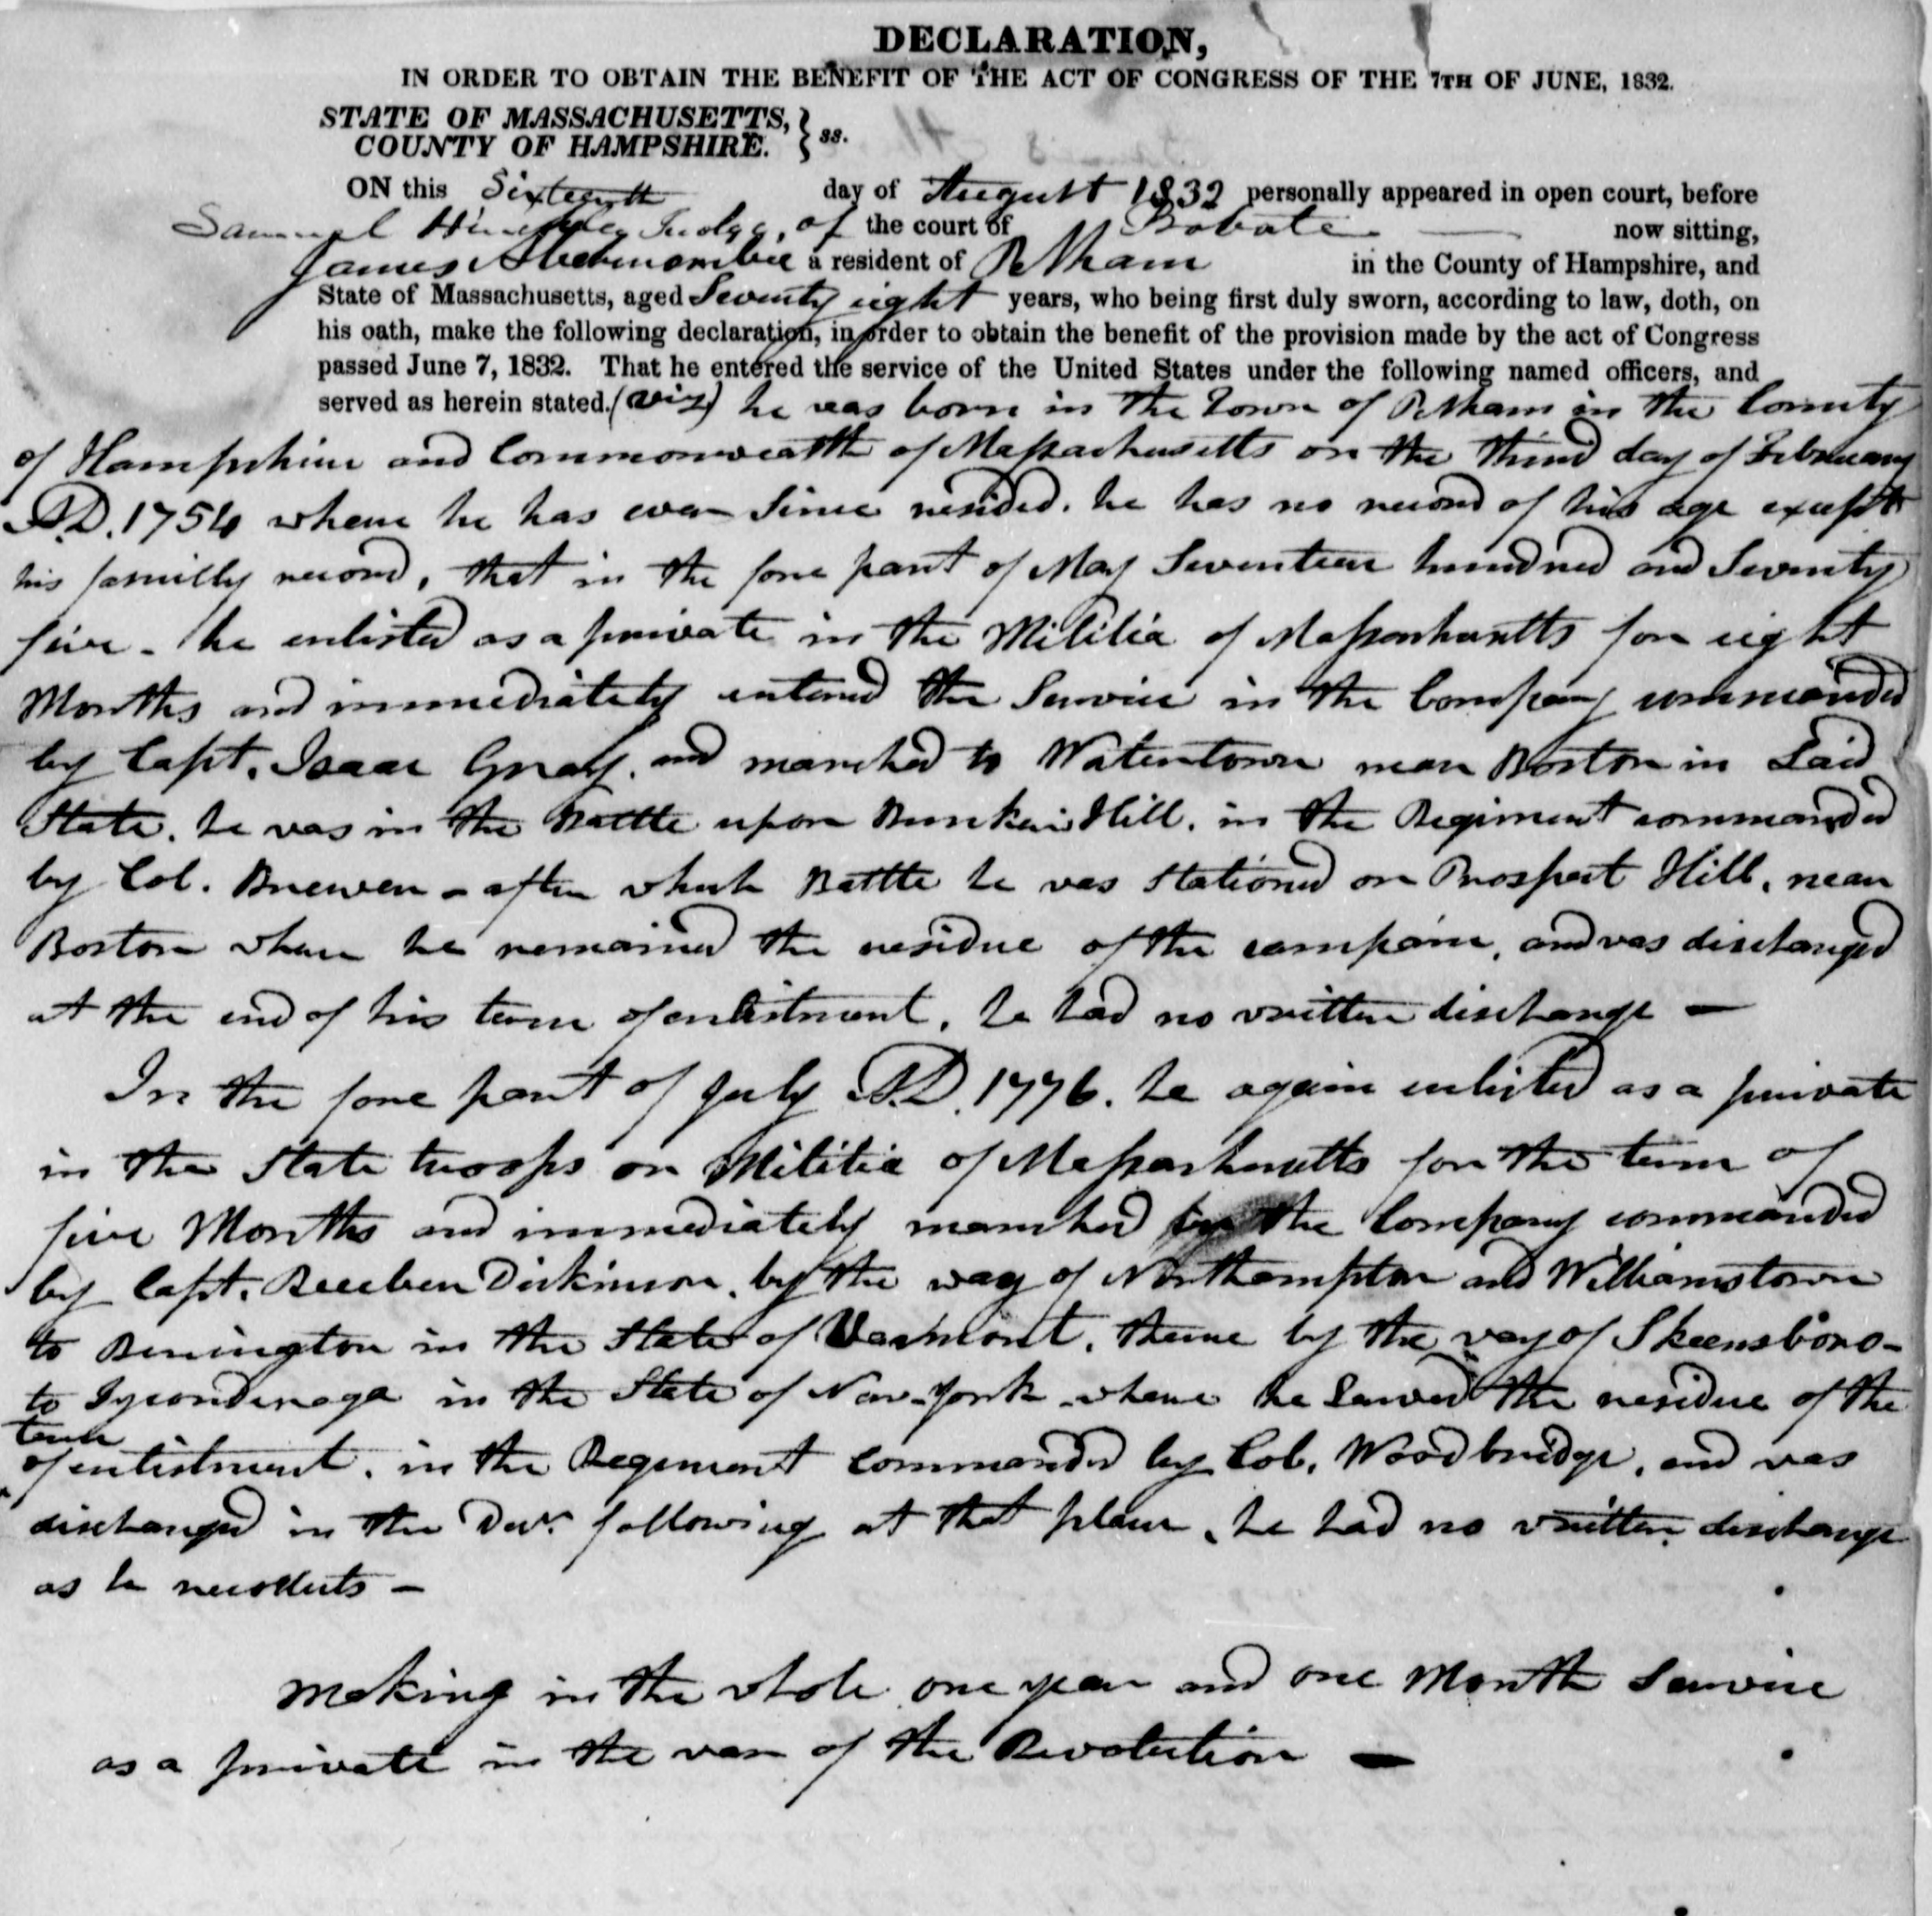 DECLARATION,
IN ORDER TO OBTAIN THE BENEFIT OF THE ACT OF CONGRESS OF THE 7TH OF JUNE, 1832.
STATE OF MASSACHUSETTS,
COUNTY OF HAMPSHIRE. } ss.
ON this Sixteenth day of August 1832 personally appeared in open court, before
Samuel Hinckley Judge, of the court of Probate — now sitting,
James Abercrombie a resident of Pelham in the County of Hampshire, and
State of Massachusetts, aged Seventy eight years, who being first duly sworn, according to law, doth, on
his oath, make the following declaration, in order to obtain the benefit of the provision made by the act of Congress
passed June 7, 1832. That he entered the service of the United States under the following named officers, and
served as herein stated. (viz) he was born in the Town of Pelham in the County
of Hampshire and Commonwealth of Massachusetts on the third day of February
A.D. 1754 where he has ever Since resided. he has no record of his age except
his familly record, that in the fore part of May Seventeen hundred and Seventy
five - he enlisted as a private in the Militia of Massachusetts for eight
Months and immediately entered the Service in the Company commanded
by Capt. Isaac Gray. and marched to Watertown near Boston in Said
State. he was in the Battle upon Bunker Hill. in the Regiment commanded
by Col. Brewer - after which Battle he was Stationed on Prospect Hill, near
Boston where he remained the residue of the campain, and was discharged
at the end of his term of enlistment, he had no written discharge —
In the fore part of July A.D. 1776. he again enlisted as a private
in the State troops or Militia of Massachusetts for the term of
five Months and immediately marched in the Company commanded
by Capt. Reeuben Dickinson, by the way of Northampton and Williamstown
to Benington in the State of Vermont, thence by the way of Skeensboro-
to Tyconderoga in the State of New-York where he Served the residue of the
term
of enlistment, in the Regement commanded by Col. Woodbridge, and was
discharged in the Decr. following at that place, he had no written discharge
as he recollects —
making in the whole one year and one Month Service
as a private in the war of the Revolution —